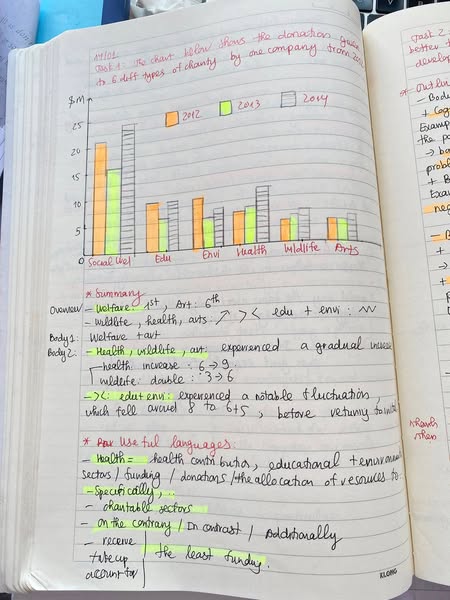 17/01
Task 1: The chart below shows the donation given
to 6 diff types of charity by one company from 201
$M
2012
2013
2014
25
20
15
10
5
0
Social Wel
Edu
Envi
Health
Wildlife
Arts
* Summary
Overview - Welfare: 1st, Art: 6th
- Wildlife, health, arts: ↗ >< edu + envi:
Body 1: Welfare + art
Body 2: - Health, wildlife, art: experienced a gradual increase
health: increase: 6 → 9
wildlife: double: 3 → 6
- ><: edu + envi: experienced a notable fluctuation,
which fell around 8 to 6+5, before returning to
* Useful languages:
- Health = health contribution, educational + environ
sectors / funding / donations / the allocation of resources to
- Specifically, ...
- charitable sectors
- on the contrary / In contrast / Additionally
- receive
take up
account for
the least funding.
KLONG
Task 2
better t
develop
* Outlin
- Body
+ Cog
Examp
the p
→ b
probl
+ B
Exam
neg
- B
+
→
+